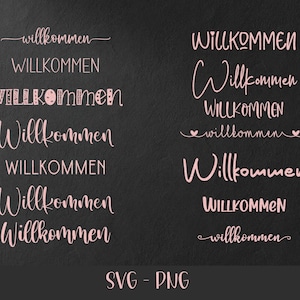 willkommen
WILLKOMMEN
WILLKOMMEN
Willkommen
WILLKOMMEN
Willkommen
Willkommen
WILLKOMMEN
Willkommen
WILLKOMMEN
willkommen
Willkommen
WILLKOMMEN
willkommen
SVG - PNG